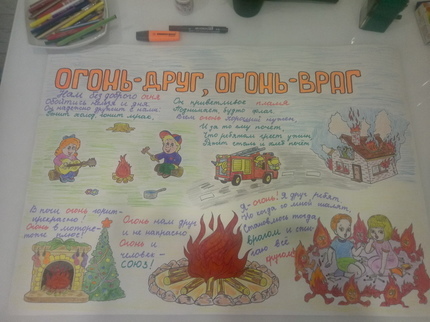 ОГОНЬ-ДРУГ, ОГОНЬ-ВРАГ
Нам без доброго огня
Обойтись нельзя и дня.
Он надежно дружит с нами
Гонит холод, гонит мрак.
Он приветливое пламя
Поднимает будто флаг.
Всем огонь хороший нужен
И за то ему почёт,
Что ребятам греет ужин,
Режет сталь и хлеб печёт
В печи огонь горит-
прекрасно!
Огонь в
Огонь нам друг
и не напрасно
Огонь и
человек-
СОЮЗ!
Я-огонь! Я друг ребят
Но когда со мной шалят
Становлюсь тогда
врагом и
все